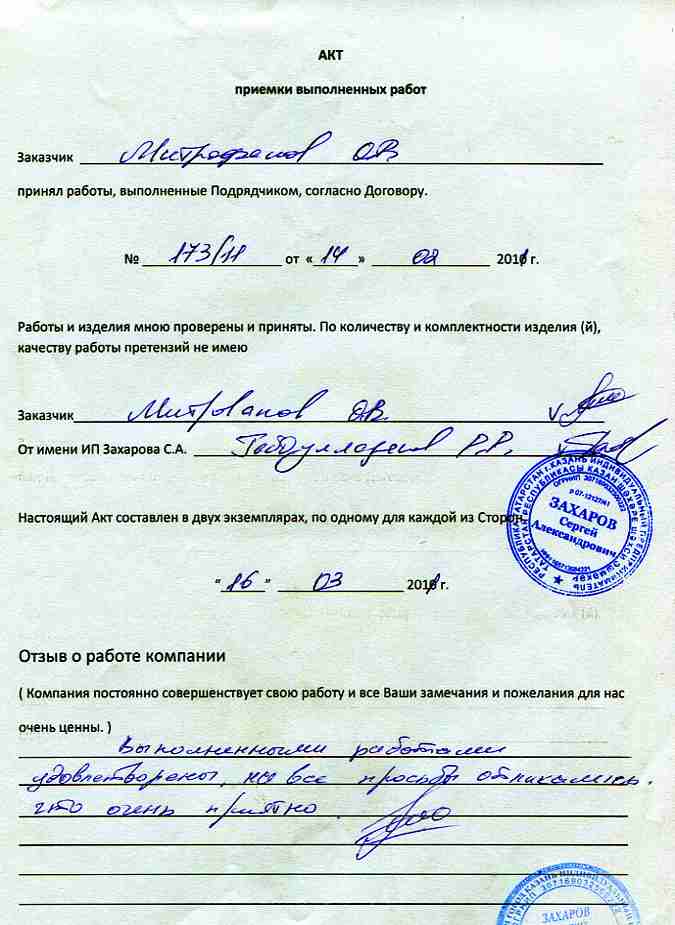 АКТ
приемки выполненных работ
Заказчик Митрофанов О.В.
принял работы, выполненные Подрядчиком, согласно Договору.
№ 173/11 от «14» 02 2011 г.
Работы и изделия мною проверены и приняты. По количеству и комплектности изделия (й),
качеству работы претензий не имею
Заказчик Митрованов О.В.
От имени ИП Захарова С.А. Р.Р.
Настоящий Акт составлен в двух экземплярах, по одному для каждой из Сторон.
ЗАХАРОВ
Сергей
Александрович
"16" 03 2011 г.
Отзыв о работе компании
( Компания постоянно совершенствует свою работу и все Ваши замечания и пожелания для нас
очень ценны. )
Выполненными работами
удовлетворены, на все просьбы откликались.
что очень приятно.
ЗАХАРОВ